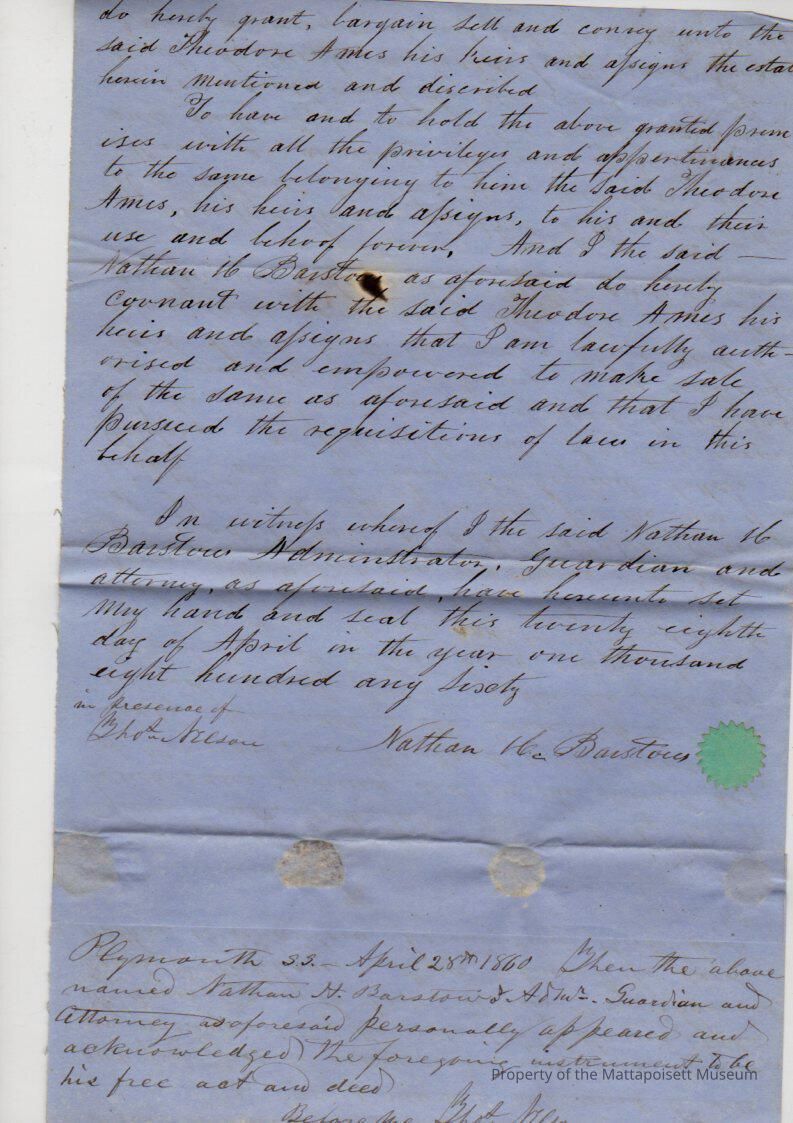 do hereby grant, bargain sell and convey unto the
said Theodore Ames his heirs and assigns the estat
herein mentioned and discribed
To have and to hold the above granted prem
ises with all the privileges and appertinances
to the same belonging to him the said Theodore
Ames, his heirs and assigns, to his and their
use and behoof forever. And I the said —
Nathan H Barstow as aforesaid do hereby
covnant with the said Theodore Ames his
heirs and assigns that I am lawfully auth-
orised and empowered to make sale
of the same as aforesaid and that I have
pursued the requisitions of law in this
behalf
In witness whereof I the said Nathan H
Barstow Adminstrator, Guardian and
attorney, as aforesaid, have hereunto set
my hand and seal this twenty eighth
day of April in the year one thousand
eight hundred any Sixty
in presence of
Thos. Nelson Nathan H. Barstow
Plymouth ss.— April 28th 1860 Then the above
named Nathan H. Barstow Admr. Guardian and
Attorney as aforesaid personally appeared and
acknowledged the foregoing instrument to be
his free act and deed
Before me Thos. Nelson
Property of the Mattapoisett Museum